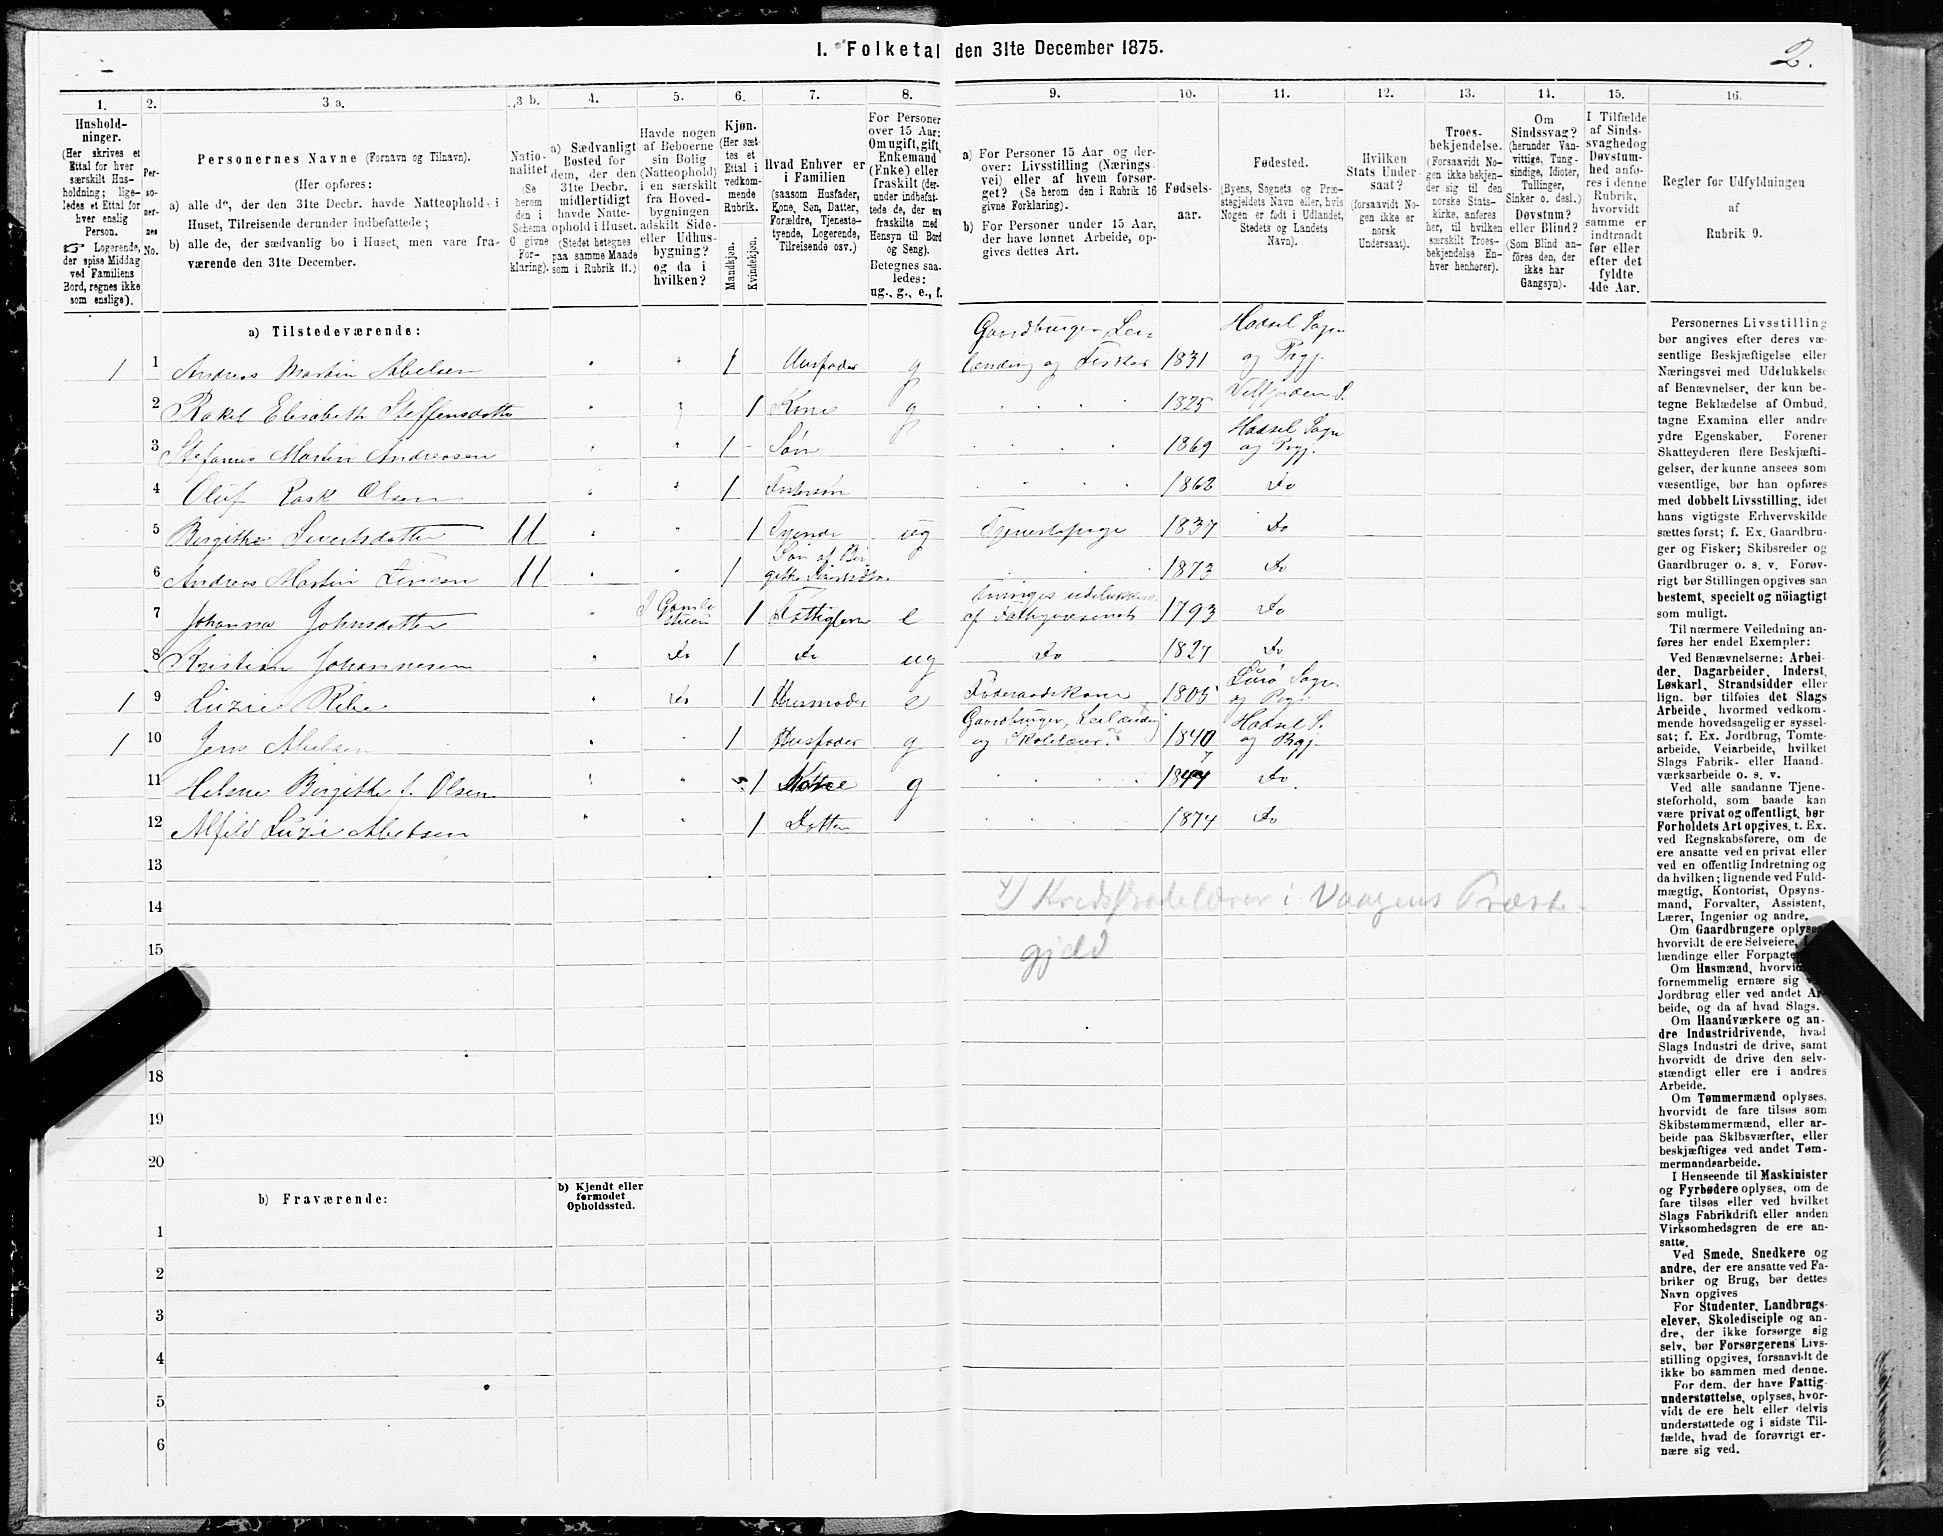 1. Folketal den 31te December 1875.
2.
1. 2. 3 a. 3 b. 4. 5. 6. 7. 8. 9. 10. 11. 12. 13. 14. 15. 16.
Hushold-
ninger.
(Her skrives et
Ettal for hver
særskilt Hus-
holdning; lige-
ledes et Ettal for
hver enslig
Person.
☞ Logerende,
der spise Middag
ved Familiens
Bord, regnes ikke
som enslige).
Per-
so-
ner-
nes
No.
Personernes Navne (Fornavn og Tilnavn).
(Her opføres:
a) alle de, der den 31te Decbr. havde Natteophold i
Huset, Tilreisende derunder indbefattede;
b) alle de, der sædvanlig bo i Huset, men vare fra-
værende den 31te December.
Natio-
nalitet
(Se
herom
den i
Schema
O givne
For-
klaring).
a) Sædvanligt
Bosted for
dem, der den
31te Decbr.
midlertidigt
havde Natte-
ophold i Huset.
(Stedet betegnes
paa samme Maade
som i Rubrik 11.)
Havde nogen
af Beboerne
sin Bolig
(Natteophold)
i en særskilt
fra Hoved-
bygningen
adskilt Side-
eller Udhus-
bygning?
og da i
hvilken?
Kjøn.
(Her sæt-
tes et
Ettal i
vedkom-
mende
Rubrik.
Mandkjøn.
Kvindekjøn.
Hvad Enhver er
i Familien
(saasom Husfader,
Kone, Søn, Datter,
Forældre, Tjeneste-
tyende, Logerende,
Tilreisende osv.)
For Personer
over 15 Aar:
Om ugift, gift,
Enkemand
(Enke) eller
fraskilt (der-
under indbefat-
tede de, der ere
fraskilte med
Hensyn til Bord
og Seng).
Betegnes saa-
ledes:
ug., g., e., f.
a) For Personer 15 Aar og der-
over: Livsstilling (Nærings-
vei) eller af hvem forsør-
get? (Se herom den i Rubrik 16
givne Forklaring).
b) For Personer under 15 Aar,
der have lønnet Arbeide, op-
gives dettes Art.
Fødsels-
aar.
Fødested.
(Byens, Sognets og Præ-
stegjeldets Navn eller, hvis
Nogen er født i Udlandet,
Stedets og Landets
Navn).
Hvilken
Stats Under-
saat?
(forsaavidt No-
gen ikke er
norsk
Undersaat).
Troes-
bekjendelse.
(Forsaavidt No-
gen ikke bekjen-
der sig til den
norske Stats-
kirke, anføres
her, til hvilken
særskilt Troes-
bekjendelse En-
hver henhører).
Om
Sindssvag?
(herunder Van-
vittige, Tung-
sindige, Idioter,
Tullinger,
Sinker o. desl.)
Døvstum?
eller Blind?
(Som Blind an-
føres den, der
ikke har
Gangsyn).
I Tilfælde
af Sinds-
svaghed og
Døvstum-
hed anfø-
res i denne
Rubrik,
hvorvidt
samme er
indtraadt
før eller
efter det
fyldte
4de Aar.
Regler for Udfyldningen
af
Rubrik 9.
a) Tilstedeværende:
1 1 Andreas Martin Abelsen 1 Husfader g Gaardbruger, Lei- lænding og Fisker 1831 Hadsel Sogn og Prgj.
2 Rakel Elisabeth Steffensdatter 1 Kone g 1825 Velfjorden S.
3 Stefanus Martin Andreasen 1 Søn 1869 Hadsel Sogn og Prgj.
4 Oluf Rask Olsen 1 Fostersøn 1862 Do
5 Birgithe Sivertsdatter 11 1 Tyende ug Tjenestepige 1837 Do
6 Andreas Martin 11 1 Søn af Bir- githe Sivertsdtr. 1873 Do
7 Johanna Johnsdatter I Gamle stuen 1 Fattiglem e af Fattigvæsenet 1793 Do
8 Kristian Johannesen Do 1 Do ug Do 1827 Do
1 9 Luzie Ribe 1 Husmoder e Føderaadskone 1805 Lurø Sogn og Prgj
1 10 Jens Abelsen 1 Husfader g Gaardbruger, Leilænding og Skolelærer x 1840 Hadsel S. og Prgj.
11 Helene Birgitte f. Olsen 1 Kone g 1847 Do
12 Alfild Luzie Abelsen 1 Datter 1874 Do
13
14 x) Kredsskolelærer i Vaagens Præste-
15 gjeld
18
19
20
b) Fraværende:
b) Kjendt eller
formodet
Opholdssted.
1
2
3
4
5
6
Personernes Livsstilling
bør angives efter deres væ-
sentlige Beskjæftigelse eller
Næringsvei med Udelukkelse
af Benævnelser, der kun be-
tegne Beklædelse af Ombud,
tagne Examina eller andre
ydre Egenskaber. Forener
Skatteyderen flere Beskjæfti-
gelser, der kunne ansees som
væsentlige, bør han opføres
med dobbelt Livsstilling, idet
hans vigtigste Erhvervskilde
sættes først; f. Ex. Gaardbru-
ger og Fisker; Skibsreder og
Gaardbruger o. s. v. Forøv-
rigt bør Stillingen opgives saa
bestemt, specielt og nöiagtigt
som muligt.
Til nærmere Veiledning an-
føres her endel Exempler:
Ved Benævnelserne: Arbei-
der, Dagarbeider, Inderst,
Løskarl, Strandsidder eller
lign. bør tilføies det Slags
Arbeide, hvormed vedkom-
mende hovedsagelig er syssel-
sat; f. Ex. Jordbrug, Tomte-
arbeide, Veiarbeide, hvilket
Slags Fabrik- eller Haand-
værksarbeide o. s. v.
Ved alle saadanne Tjene-
steforhold, som baade kan
være privat og offentligt, bør
Forholdets Art opgives, t. Ex.
ved Regnskabsførere, om de
ere ansatte ved en privat eller
ved en offentlig Indretning og
da hvilken; lignende ved Fuld-
mægtig, Kontorist, Opsyns-
mand, Forvalter, Assistent,
Lærer, Ingeniør og andre.
Om Gaardbrugere oplyses,
hvorvidt de ere Selveiere,
lændinge eller
Om Husmænd,
fornemmelig ernære sig
Jordbrug eller ved andet Ar-
beide, og da af hvad Slags.
Om Haandværkere og an-
dre Industridrivende, hvad
Slags Industri de drive, samt
hvorvidt de drive den selv-
stændigt eller ere i andres
Arbeide.
Om Tømmermænd oplyses,
hvorvidt de fare tilsøs som
Skibstømmermænd, eller ar-
beide paa Skibsværfter, eller
beskjæftiges ved andet Tøm-
mermandsarbeide.
I Henseende til Maskinister
og Fyrbødere oplyses, om de
fare tilsøs eller ved hvilket
Slags Fabrikdrift eller anden
Virksomhedsgren de ere an-
satte.
Ved Smede, Snedkere og
andre, der ere ansatte ved Fa-
briker og Brug, bør dettes
Navn opgives
For Studenter, Landbrugs-
elever, Skoledisciple og an-
dre, der ikke forsørge sig
selv, bør Forsørgerens Livs-
stilling opgives, forsaavidt de
ikke bo sammen med denne.
For dem, der have Fattig-
understøttelse, oplyses, hvor-
vidt de ere helt eller delvis
understøttede og i sidste Til-
fælde, hvad de forøvrigt er-
nære sig ved.